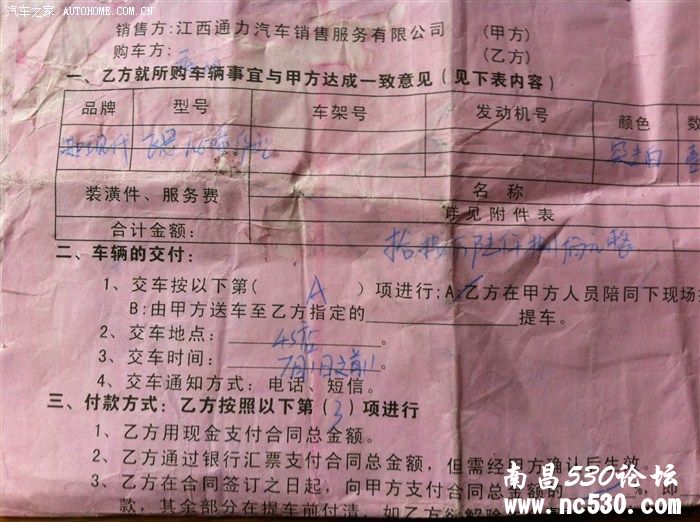 汽车之家 AUTOHOME.COM.CN
销售方:江西通力汽车销售服务有限公司 (甲方)
购车方: (乙方)
一、乙方就所购车辆事宜与甲方达成一致意见(见下表内容)
品牌 型号 车架号 发动机号 颜色 数
现代
装潢件、服务费 名称
详见附件表
合计金额: 拾 万陆仟捌佰元整
二、车辆的交付:
1、交车按以下第( A )项进行;A:乙方在甲方人员陪同下现场
B:由甲方送车至乙方指定的 提车。
2、交车地点: 4S店。
3、交车时间: 7月1日之前。
4、交车通知方式:电话、短信。
三、付款方式:乙方按照以下第(3)项进行
1、乙方用现金支付合同总金额。
2、乙方通过银行汇票支付合同总金额,但需经甲方确认后生效
3、乙方在合同签订之日起,向甲方支付合同总金额的 %,即
款,其余部分在提车前付清,如乙方欲解除
南昌530论坛
www.nc530.com